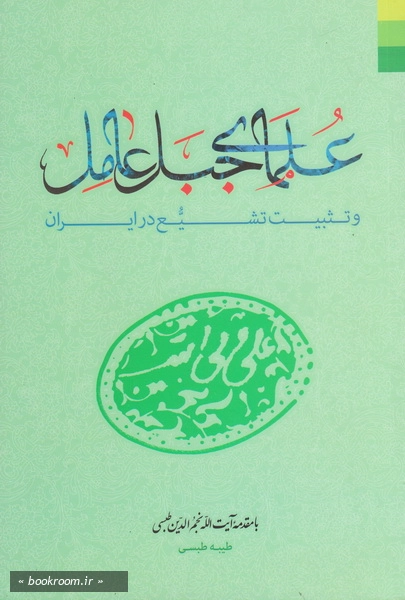 علمای جبل عامل
و تثبیت تشیُّع در ایران
با مقدمهٔ آیت الله نجم الدین طبسی
طیبه طبسی
« bookroom.ir »